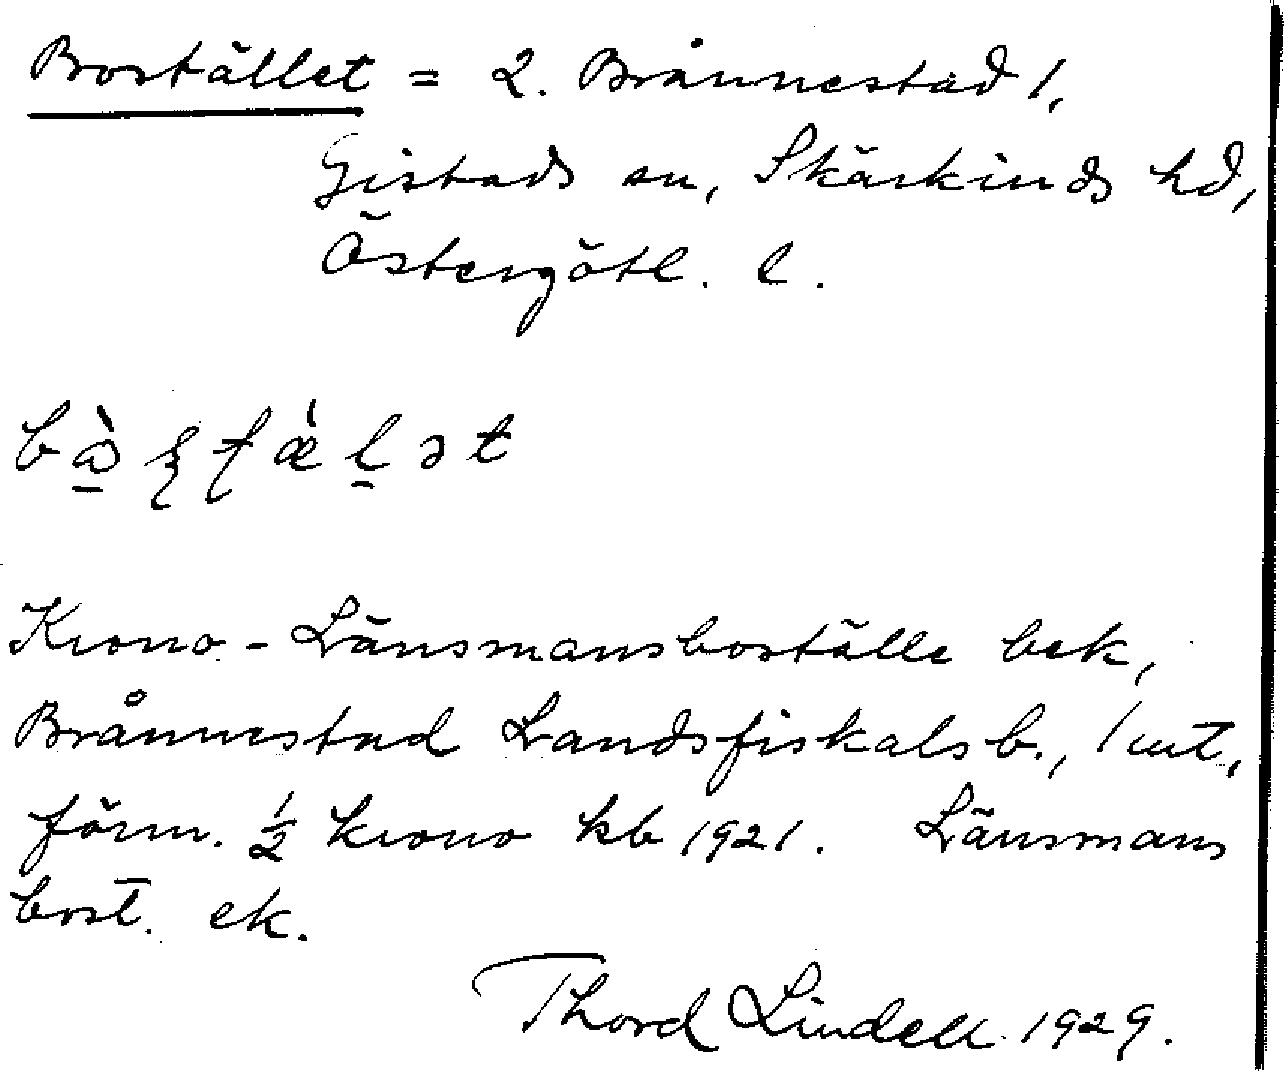 Bostället = 2. Brånnestad 1,
Gistads sn, Skärkinds hd,
Östergötl. l.
Krono-Länsmansboställe bek,
Brånnestad Landsfiskalsb., 1 mt,
förm. ½ krono kb 1921. Länsmans
bost. ek.
Thord Lindell 1929.